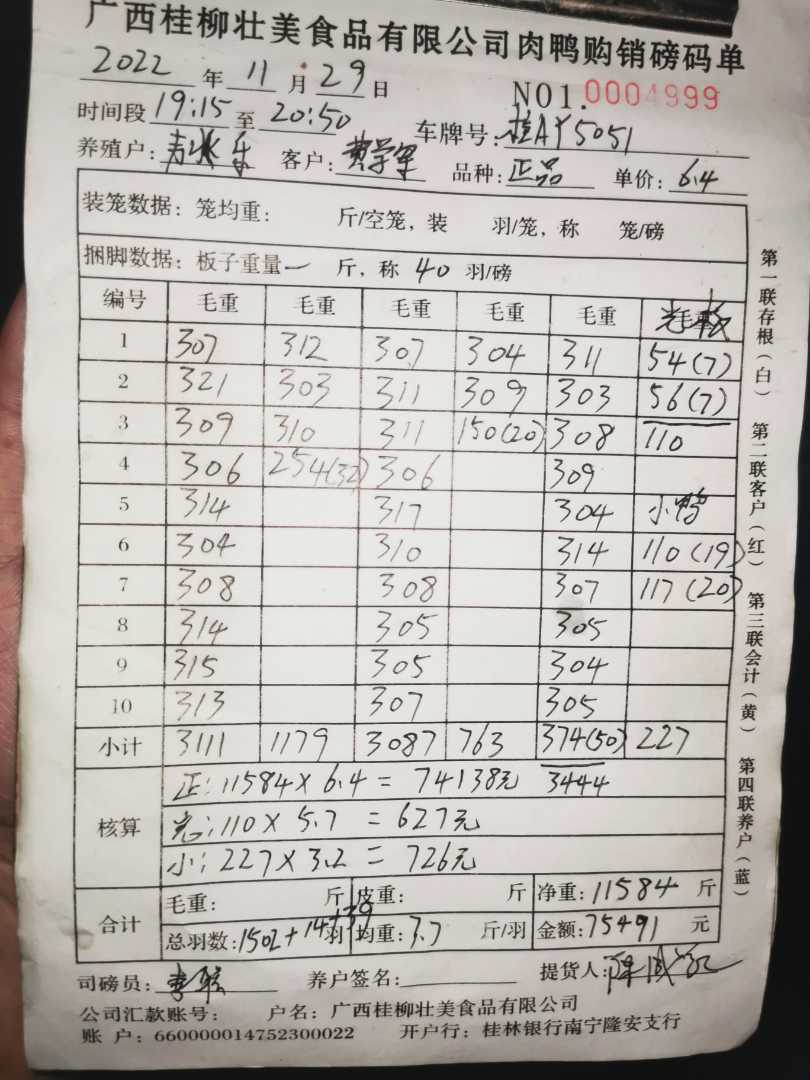 广西桂柳壮美食品有限公司肉鸭购销磅码单
2022 年 11 月 29 日 NO1. 0004999
时间段 19:15 至 20:50 车牌号: 桂AY5051
养殖户: 客户: 黄学军 品种: 正品 单价: 6.4
装笼数据: 笼均重: 斤/空笼, 装 羽/笼, 称 笼/磅
捆脚数据: 板子重量 一 斤, 称 40 羽/磅
编号 毛重 毛重 毛重 毛重 毛重 毛重
1 307 312 307 304 311 54(7)
2 321 303 311 309 303 56(7)
3 309 310 311 150(20) 308 110
4 306 254(32) 306 309
5 314 317 304 小鸭
6 304 310 314 110(19)
7 308 308 307 117(20)
8 314 305 305
9 315 305 304
10 313 307 305
小计 3111 1179 3087 763 374(50) 227
3444
核算
正: 11584×6.4=74138元
光: 110×5.7=627元
小: 227×3.2=726元
合计
毛重: 斤 皮重: 斤 净重: 11584 斤
总羽数: 1502+14+39 羽 均重: 3.7 斤/羽 金额: 75491 元
司磅员: 养户签名: 提货人:
公司汇款账号: 户名: 广西桂柳壮美食品有限公司
账 户: 660000014752300022 开户行: 桂林银行南宁隆安支行
第一联存根(白)
第二联客户(红)
第三联会计(黄)
第四联养户(蓝)